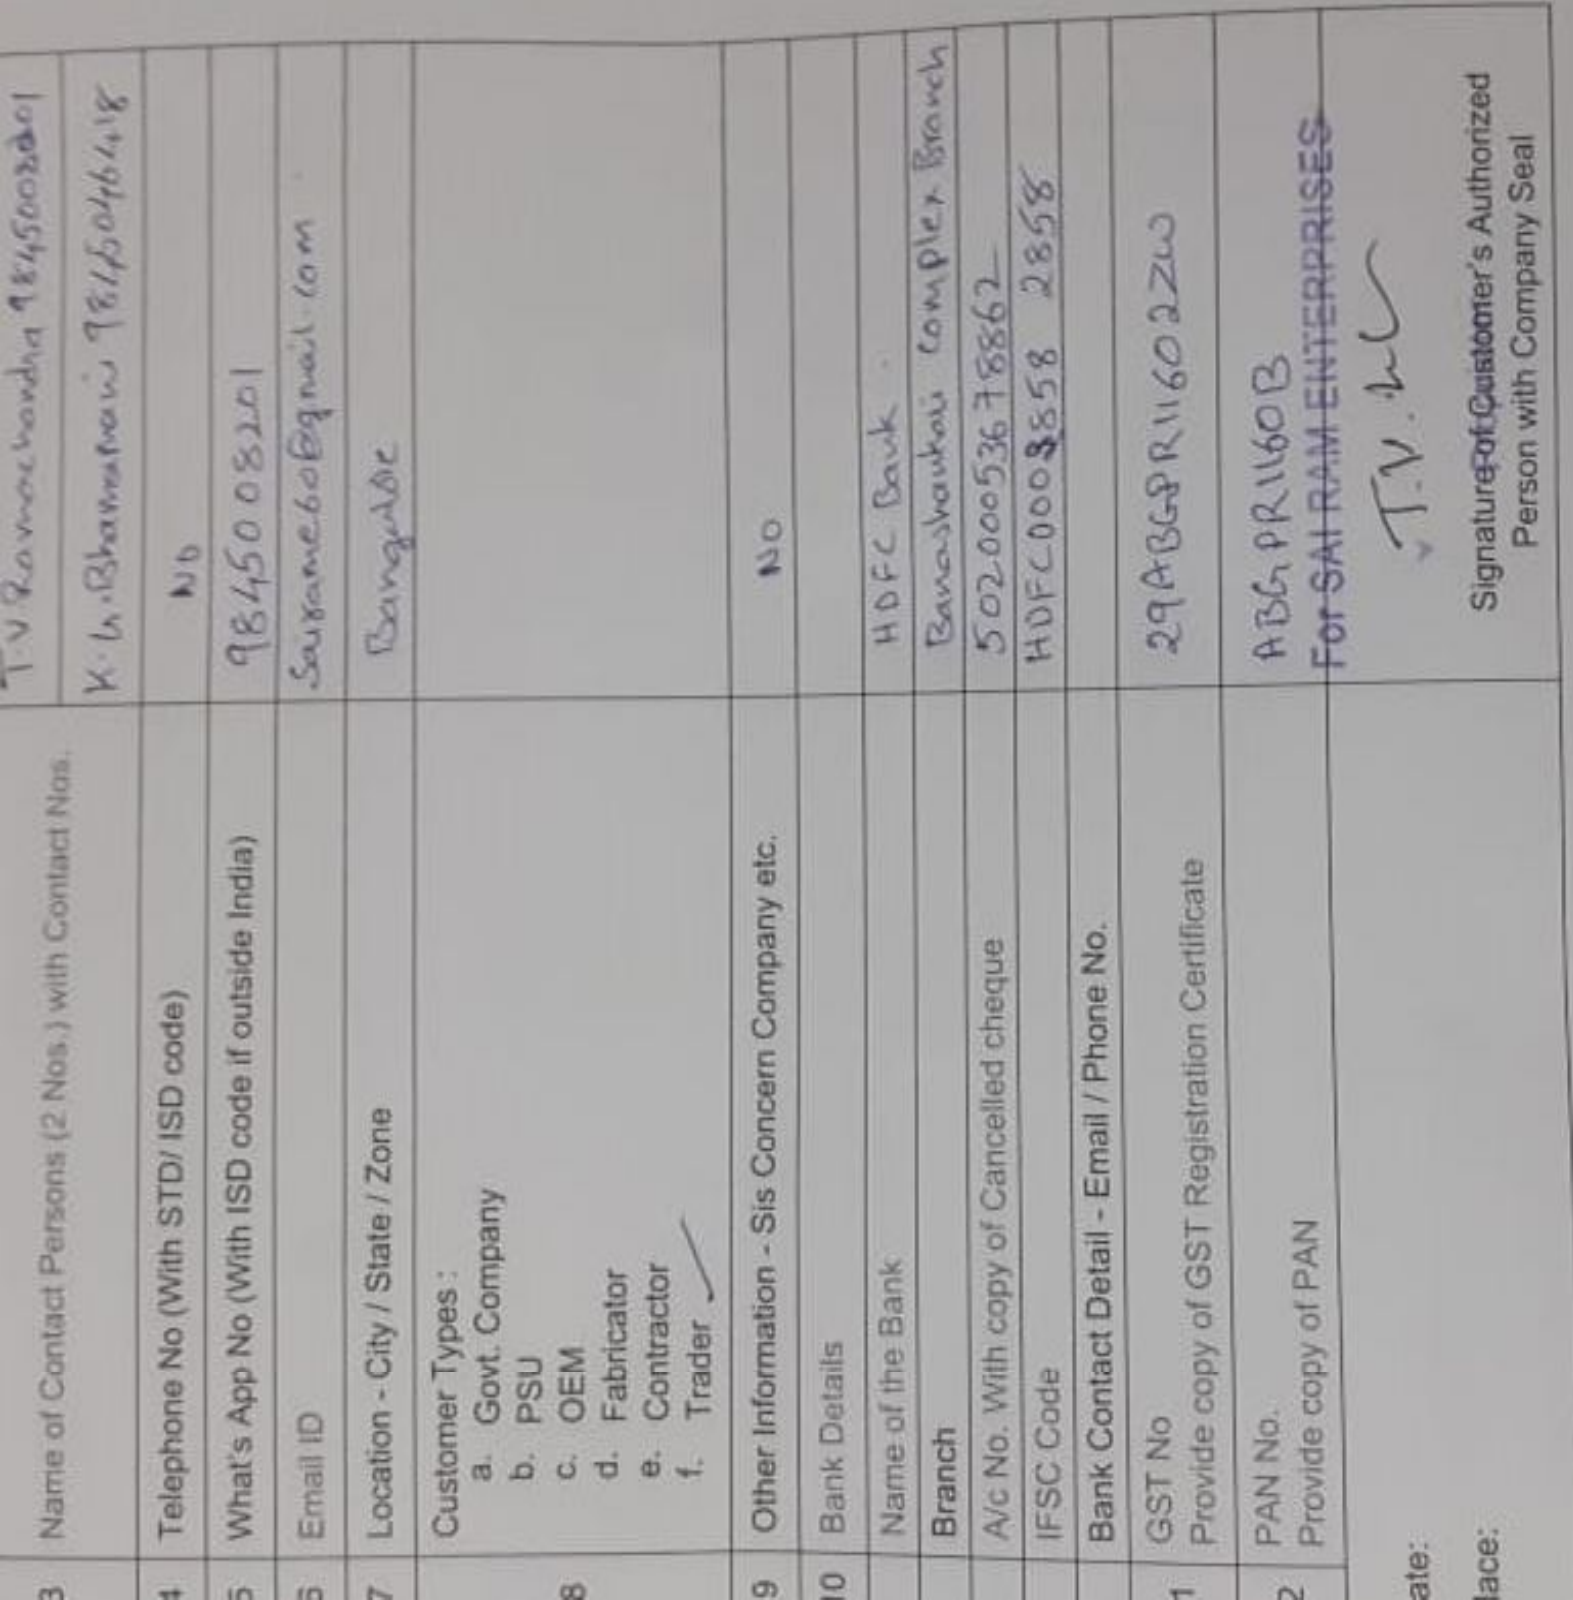 3 Name of Contact Persons (2 Nos.) with Contact Nos. T.V Ramachandra 9845008201
K.G. 9845046418
4 Telephone No (With STD/ ISD code) NO
5 What's App No (With ISD code if outside India) 9845008201
6 Email ID Sairame60@gmail.com
7 Location - City / State / Zone Bangalore
8 Customer Types :
a. Govt. Company
b. PSU
c. OEM
d. Fabricator
e. Contractor
f. Trader ✓
9 Other Information - Sis Concern Company etc. NO
10 Bank Details
Name of the Bank HDFC Bank.
Branch Banashankari Complex Branch
A/c No. With copy of Cancelled cheque 50200053678862
IFSC Code HDFC000 2858
Bank Contact Detail - Email / Phone No.
1 GST No 29ABGPR1160
Provide copy of GST Registration Certificate
2 PAN No. ABGPR1160B
Provide copy of PAN
For SAI RAM ENTERPRISES
ate:
lace:
Signature of Customer's Authorized
Person with Company Seal